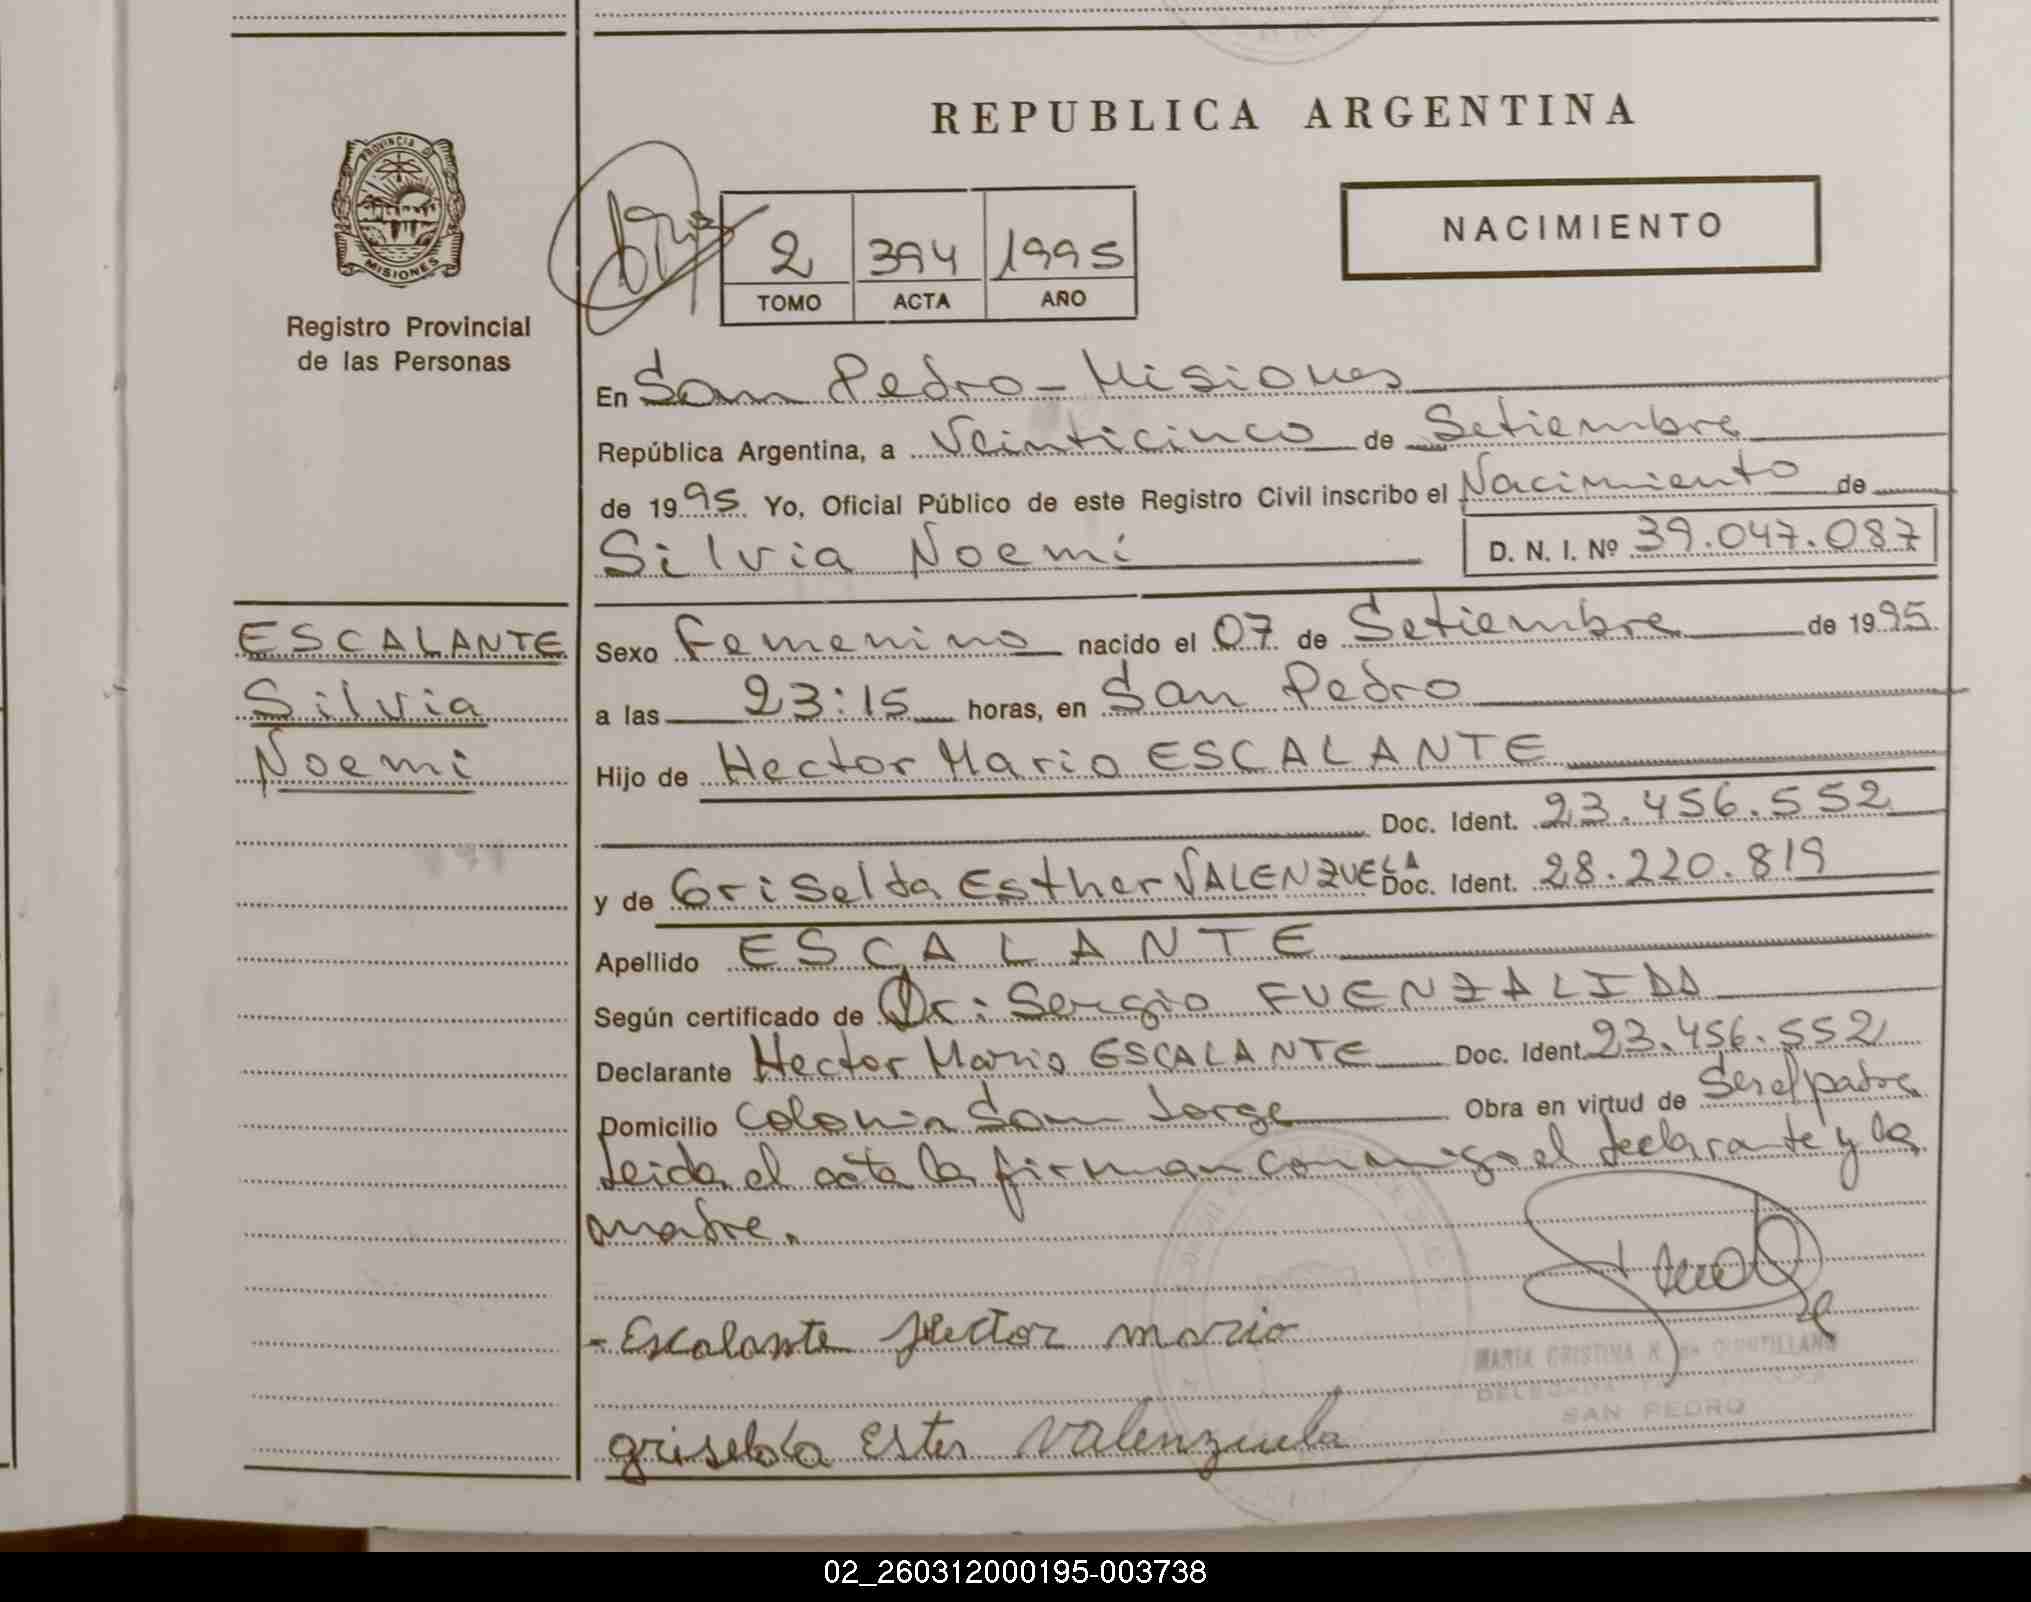 REPUBLICA ARGENTINA
PROVINCIA DE
MISIONES
Registro Provincial
de las Personas
2 394 1995
TOMO ACTA AÑO
NACIMIENTO
En San Pedro - Misiones
República Argentina, a Veinticinco de Setiembre
de 1995 Yo, Oficial Público de este Registro Civil inscribo el Nacimiento de
Silvia Noemi
D. N. I. Nº 39.047.087
ESCALANTE
Silvia
Noemi
Sexo Femenino nacido el 07 de Setiembre de 1995
a las 23:15 horas, en San Pedro
Hijo de Hector Mario ESCALANTE
Doc. Ident. 23.456.552
y de Griselda Esther VALENZUELA Doc. Ident. 28.220.819
Apellido ESCALANTE
Según certificado de Dr: Sergio FUENZALIDA
Declarante Hector Mario ESCALANTE Doc. Ident. 23.456.552
Domicilio Colonia San Jorge Obra en virtud de Ser el padre
Leida el acta la firman conmigo el declarante y la
madre.
- Escalante Hector mario
MARIA CRISTINA
DELEGADA
SAN PEDRO
griselda Ester Valenzuela
02_260312000195-003738